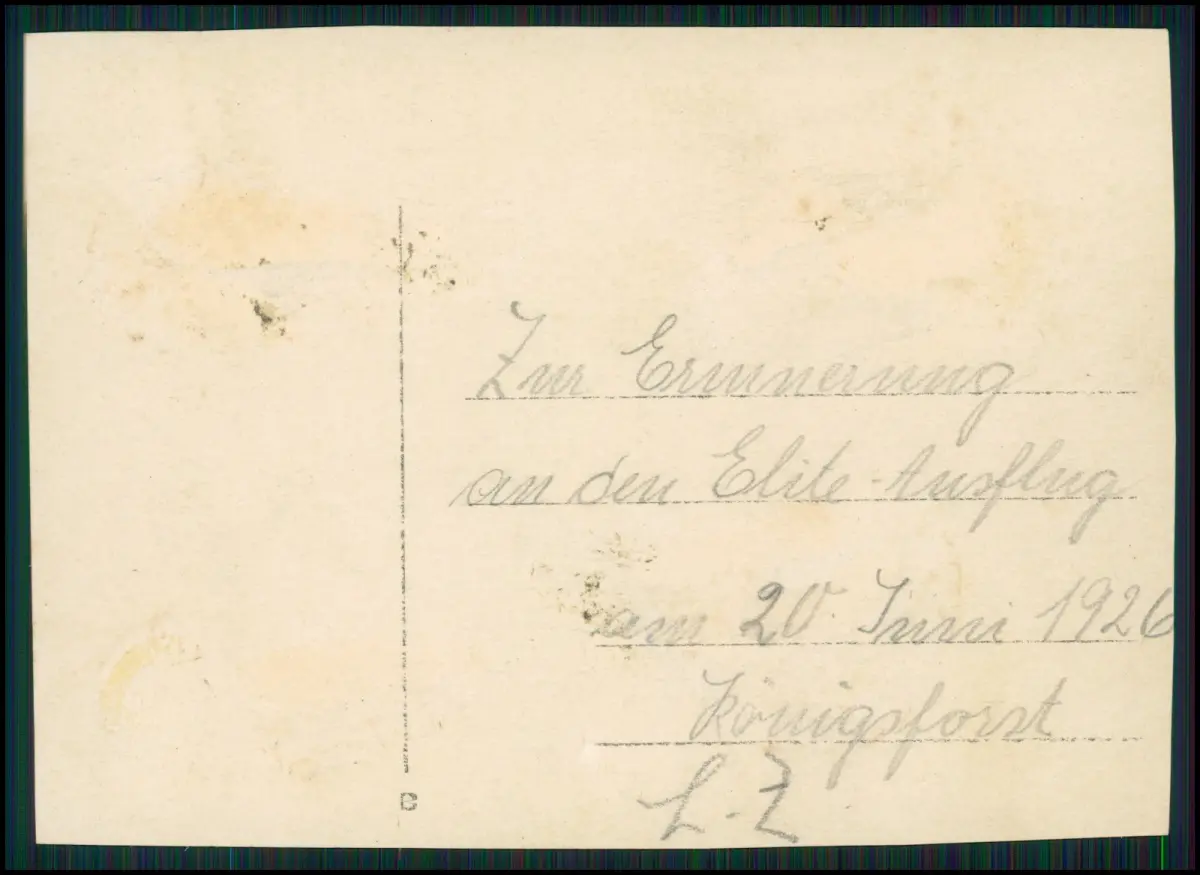 Zur Erinnerung
an den Elite-Ausflug
am 20. Juni 1926
Königsforst
L.-Z.